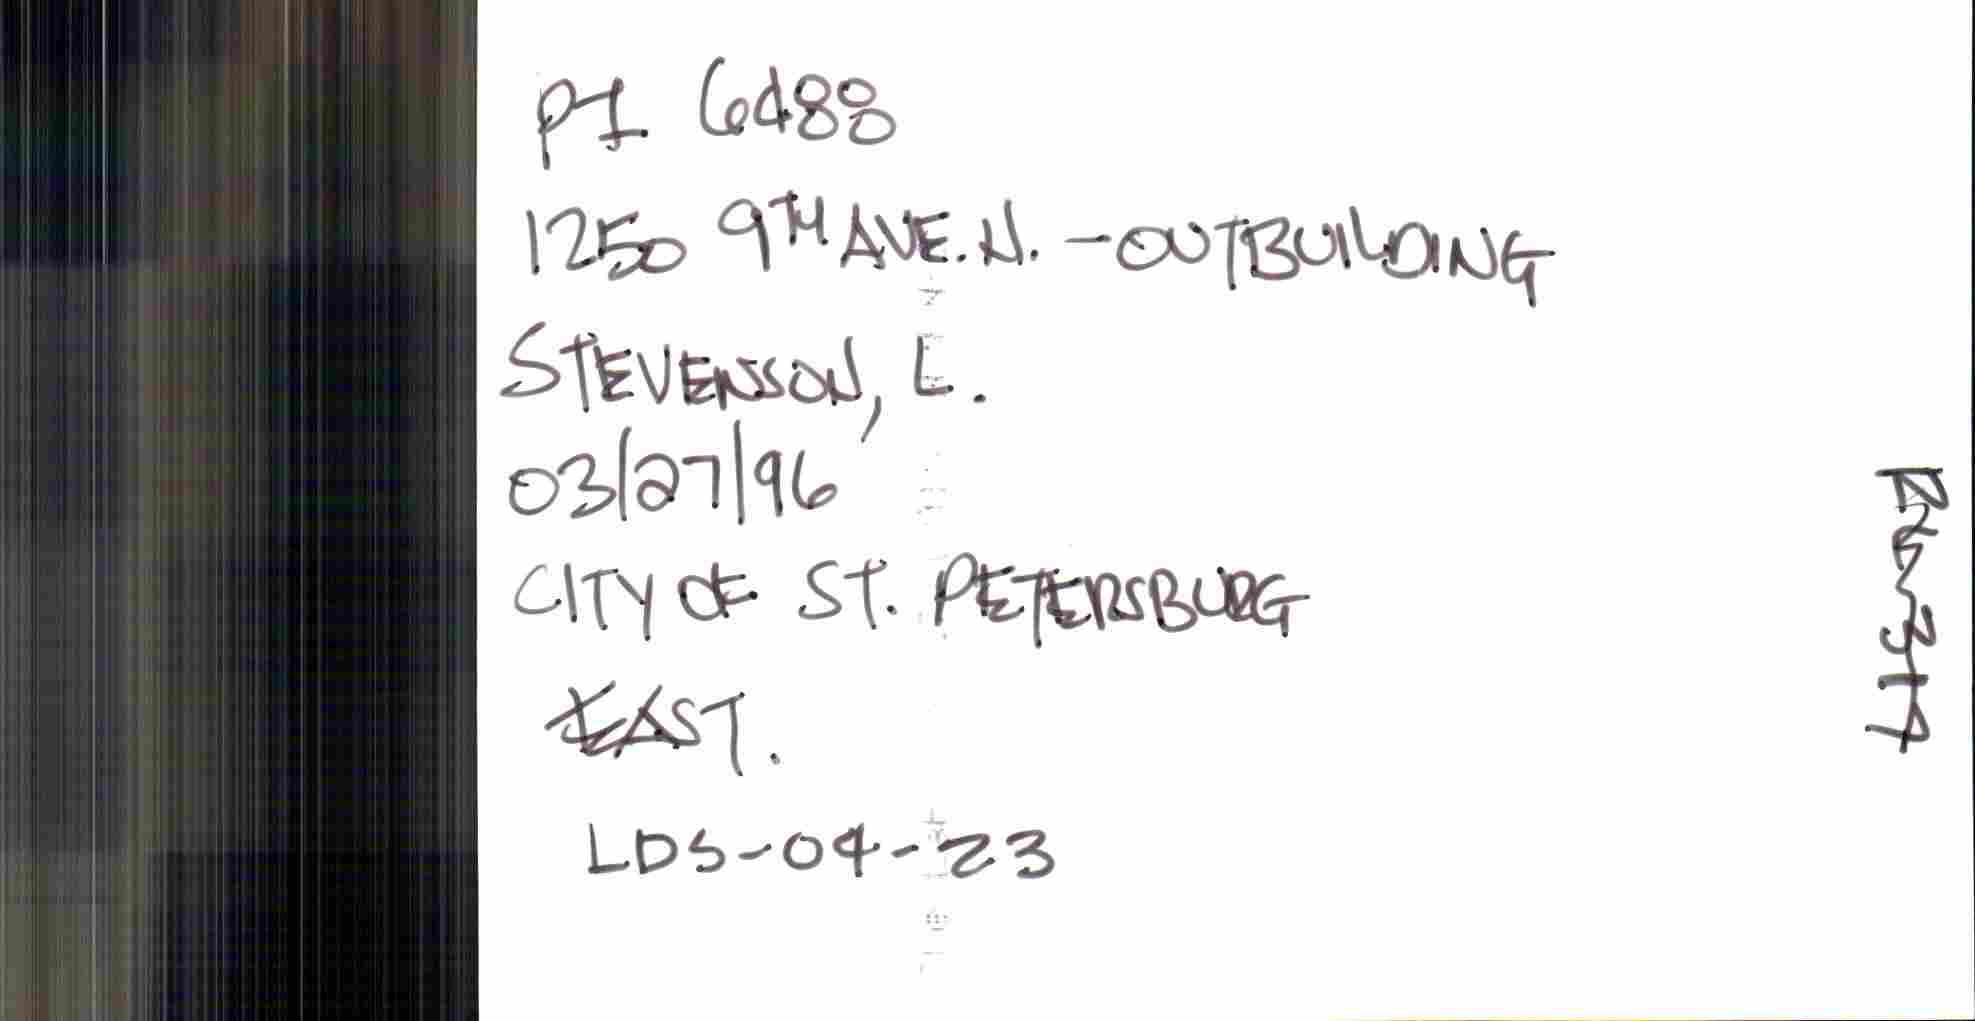 PI 6488
1250 9TH AVE. N. - OUTBUILDING
STEVENSON, L.
03/27/96
CITY OF ST. PETERSBURG
EAST.
LDS-04-23